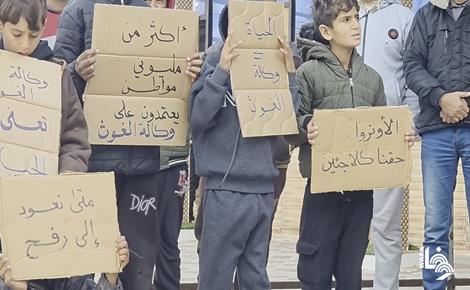 وكالة
الغوث
تعني
الحياة
أكثر من
مليوني
مواطن
يعتمدون على
وكالة الغوث
الحياة
=
وكالة
الغوث
الأونروا
حقنا كلاجئين
متى نعود
إلى رفح
DIOR